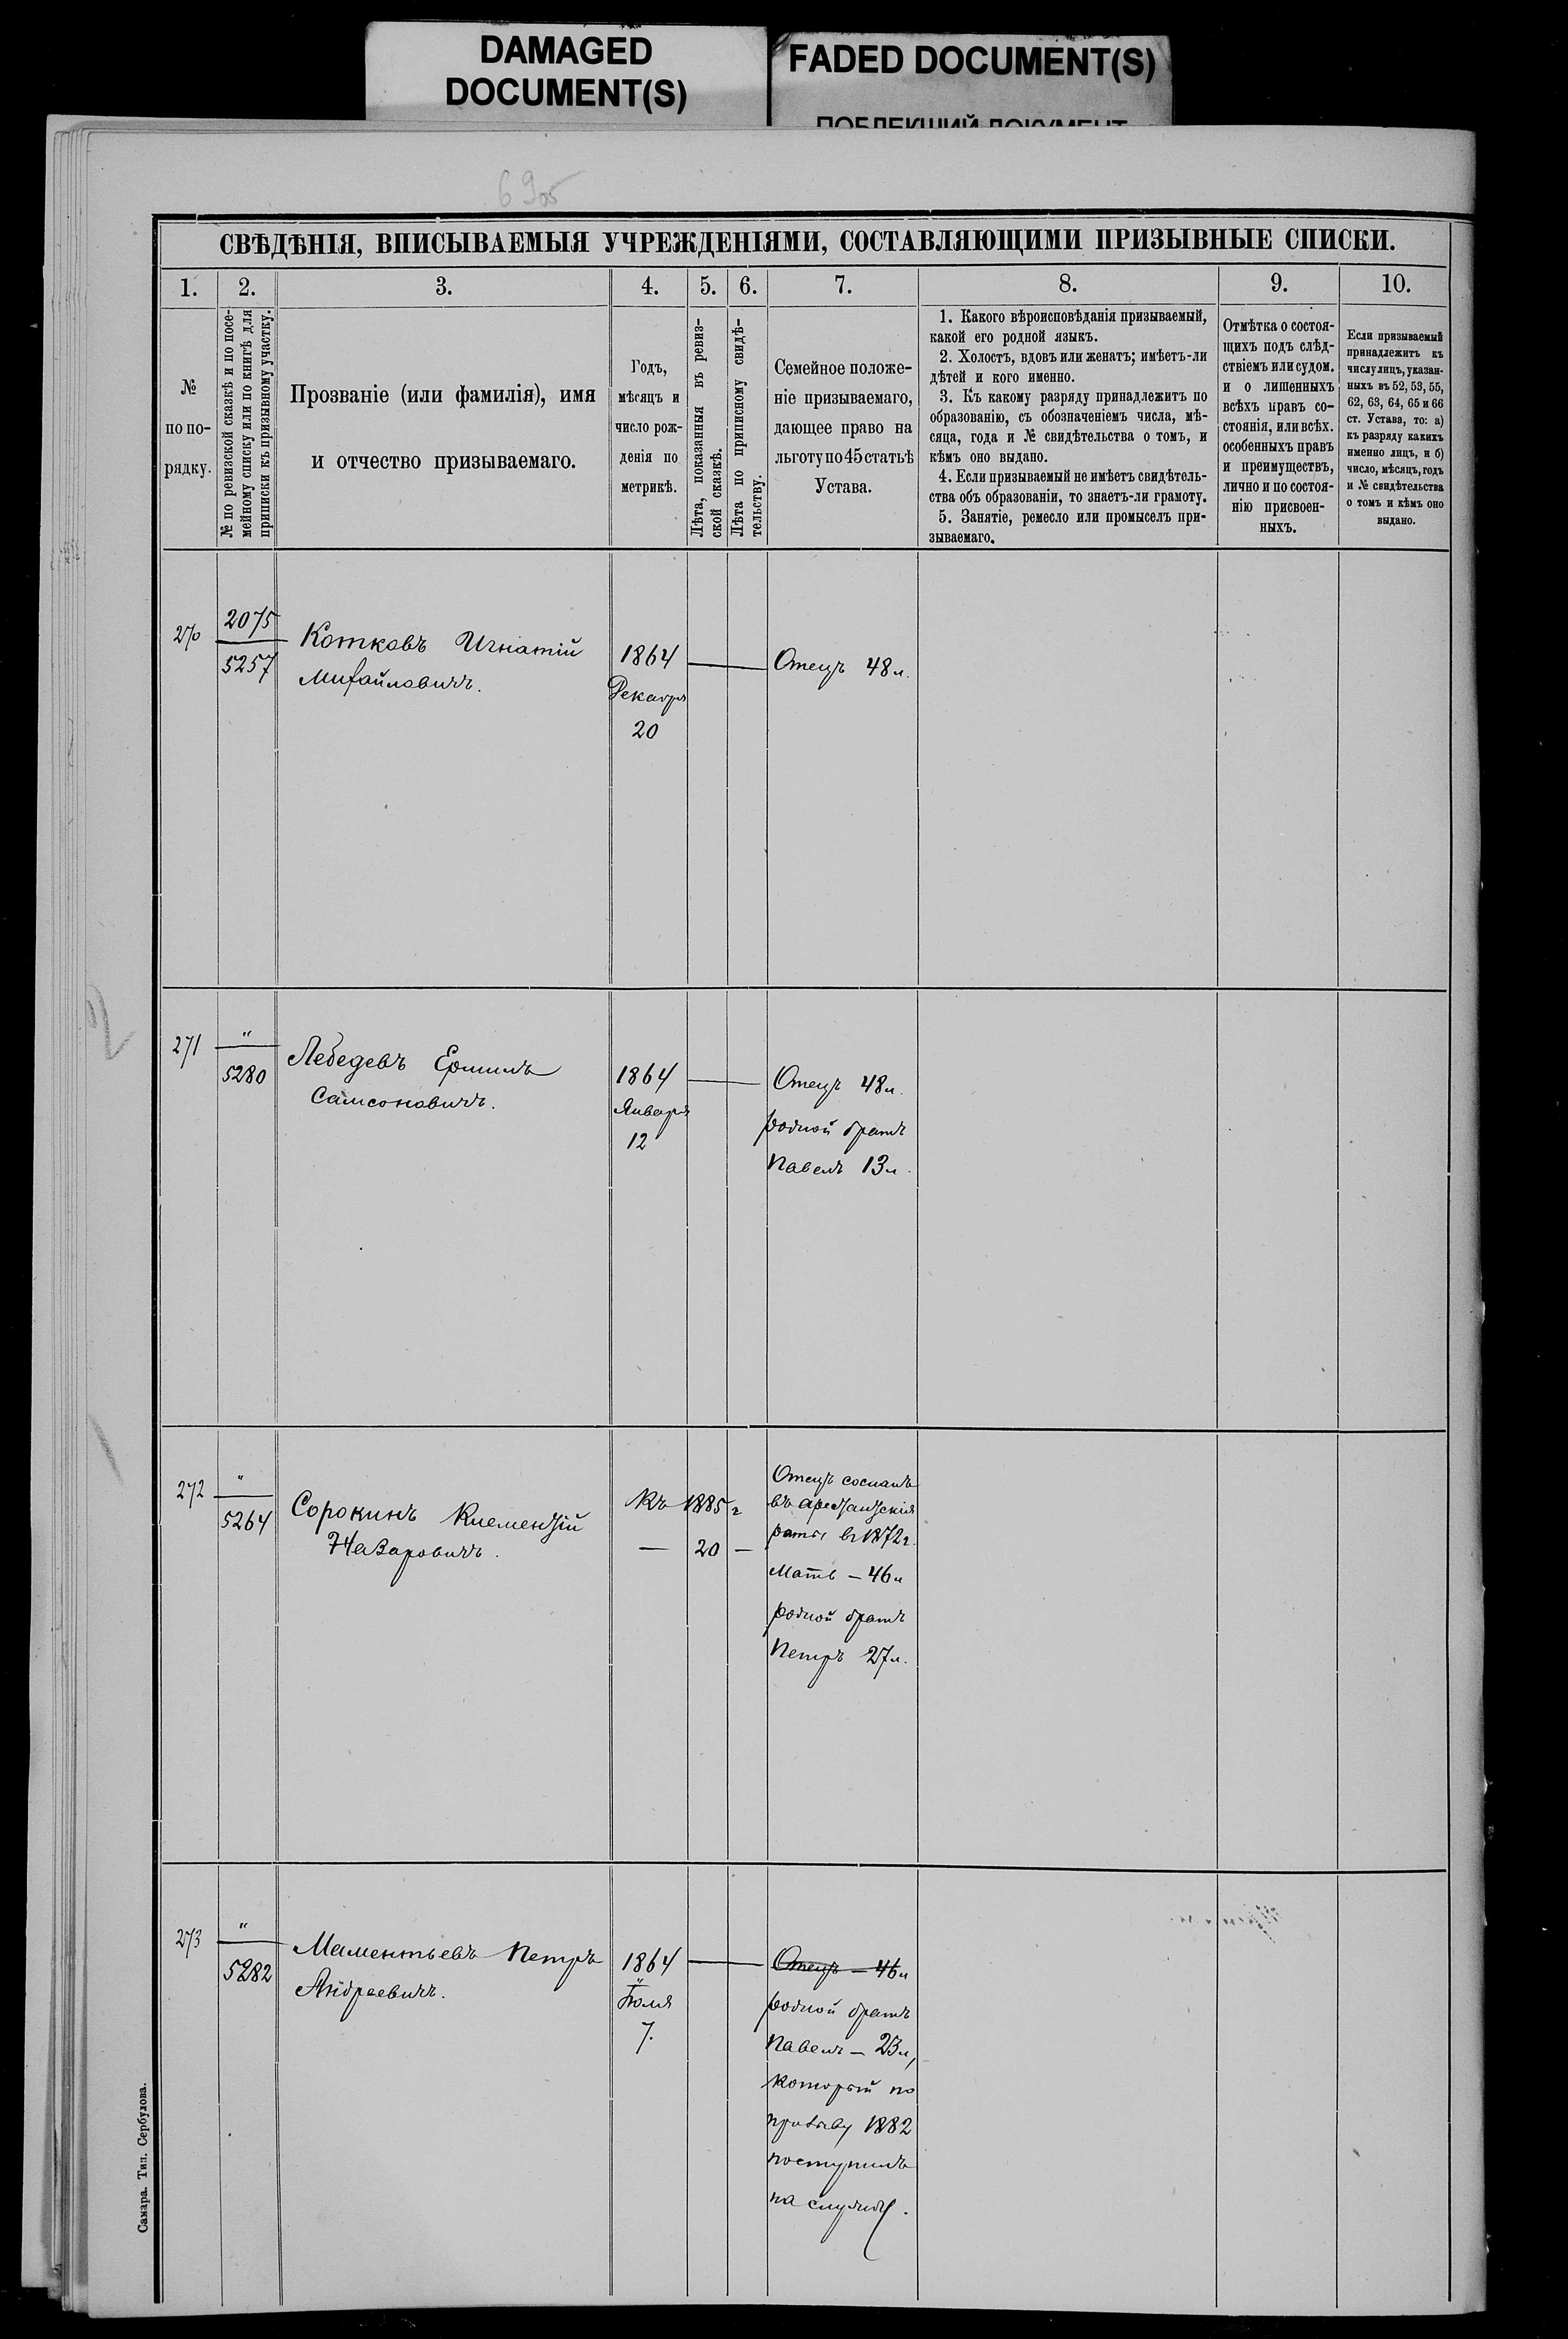 DAMAGED
DOCUMENT(S)
FADED DOCUMENT(S)
ПОБЛЕКШИЙ ДОКУМЕНТ
СВѢДѢНІЯ, ВПИСЫВАЕМЫЯ УЧРЕЖДЕНІЯМИ, СОСТАВЛЯЮЩИМИ ПРИЗЫВНЫЕ СПИСКИ.
1. 2. 3. 4. 5. 6. 7. 8. 9. 10.
№
по по-
рядку.
№ по ревизской сказкѣ и по посе-
мейному списку или по книгѣ для
приписки къ призывному участку.
Прозваніе (или фамилія), имя
и отчество призываемаго.
Годъ,
мѣсяцъ и
число рож-
денія по
метрикѣ.
Лѣта, показанныя въ ревиз-
ской сказкѣ.
Лѣта по приписному свидѣ-
тельству.
Семейное положе-
ніе призываемаго,
дающее право на
льготу по 45 статьѣ
Устава.
1. Какого вѣроисповѣданія призываемый,
какой его родной языкъ.
2. Холостъ, вдовъ или женатъ; имѣетъ-ли
дѣтей и кого именно.
3. Къ какому разряду принадлежитъ по
образованію, съ обозначеніемъ числа, мѣ-
сяца, года и № свидѣтельства о томъ, и
кѣмъ оно выдано.
4. Если призываемый не имѣетъ свидѣтель-
ства объ образованіи, то знаетъ-ли грамоту.
5. Занятіе, ремесло или промыселъ при-
зываемаго.
Отмѣтка о состоя-
щихъ подъ слѣд-
ствіемъ или судом.
и о лишенныхъ
всѣхъ правъ со-
стоянія, или всѣх.
особенныхъ правъ
и преимуществъ,
лично и по состоя-
нію присвоен-
ныхъ.
Если призываемый
принадлежитъ къ
числу лицъ, указан-
ныхъ въ 52, 53, 55,
62, 63, 64, 65 и 66
ст. Устава, то: а)
къ разряду какихъ
именно лицъ, и б)
число, мѣсяцъ, годъ
и № свидѣтельства
о томъ и кѣмъ оно
выдано.
270
2075
5257
Котковъ Игнатій
Михайловичъ.
1864
Декабря
20
Отецъ 48 л.
271
"
5280
Лебедевъ Ермилъ
Самсоновичъ.
1864
Января
12
Отецъ 48 л.
родной братъ
Павелъ 13 л.
272
"
5264
Сорокинъ Климентій
Назаровичъ.
Къ 1885 г
— 20 —
Отецъ сосланъ
въ арестантскія
роты въ 1872 г.
Мать — 46 л
родной братъ
Петръ 27 л.
273
"
5282
Маментьевъ Петръ
Андреевичъ.
1864
Іюля
7.
Отецъ — 46 л
родной братъ
Павелъ — 23 л,
который по
призыву 1882
поступилъ
на службу.
Самара. Тип. Сербулова.